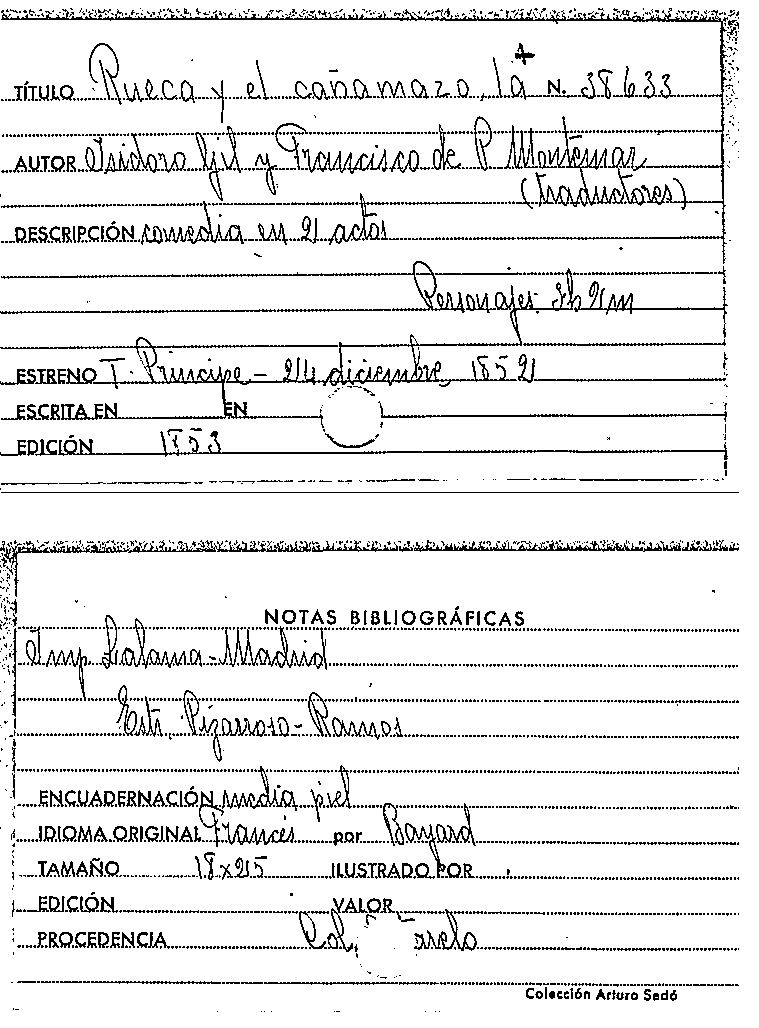 TÍTULO Rueca y el cañamazo, la N. 38633
AUTOR Isidoro Gil y Francisco de P Montemar
(traductores)
DESCRIPCIÓN comedia en 2 actos
Personajes. 3h 2m
ESTRENO T. Principe - 24 diciembre 1852
ESCRITA EN EN
EDICIÓN 1853
NOTAS BIBLIOGRÁFICAS
Imp. Lalama - Madrid
Estr. Pizarroso - Ramos
ENCUADERNACIÓN media piel
IDIOMA ORIGINAL Francés por Bayard
TAMAÑO 18x25 ILUSTRADO POR
EDICIÓN VALOR
PROCEDENCIA Col.
Colección Arturo Sedó